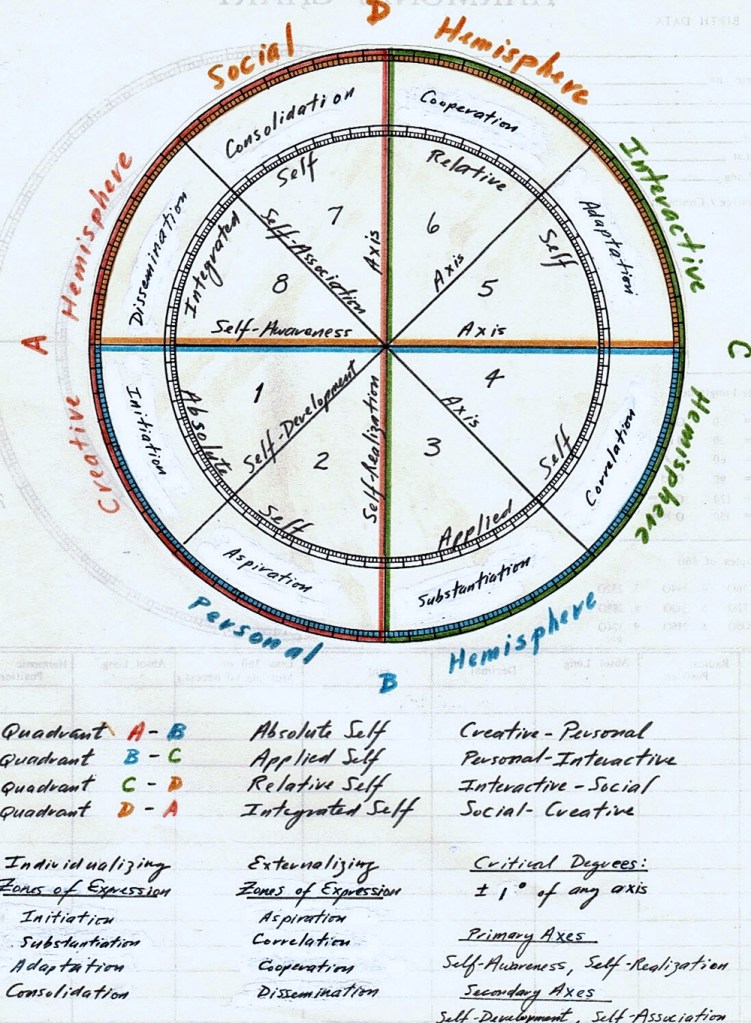 D
Social Hemisphere
Interactive Hemisphere
C
A
Creative Hemisphere
Personal Hemisphere
B
Consolidation
Cooperation
Dissemination
Adaptation
Initiation
Correlation
Aspiration
Substantiation
Integrated Self
Relative Self
Absolute Self
Applied Self
7
6
8
5
1
4
2
3
Self-Association Axis
Self-Awareness Axis
Self-Development Axis
Self-Realization Axis
Quadrant A - B Absolute Self Creative-Personal
Quadrant B - C Applied Self Personal-Interactive
Quadrant C - D Relative Self Interactive-Social
Quadrant D - A Integrated Self Social-Creative
Individualizing
Zones of Expression
Initiation
Substantiation
Adaptation
Consolidation
Externalizing
Zones of Expression
Aspiration
Correlation
Cooperation
Dissemination
Critical Degrees:
± 1° of any axis
Primary Axes
Self-Awareness, Self-Realization
Secondary Axes
Self-Development, Self-Association